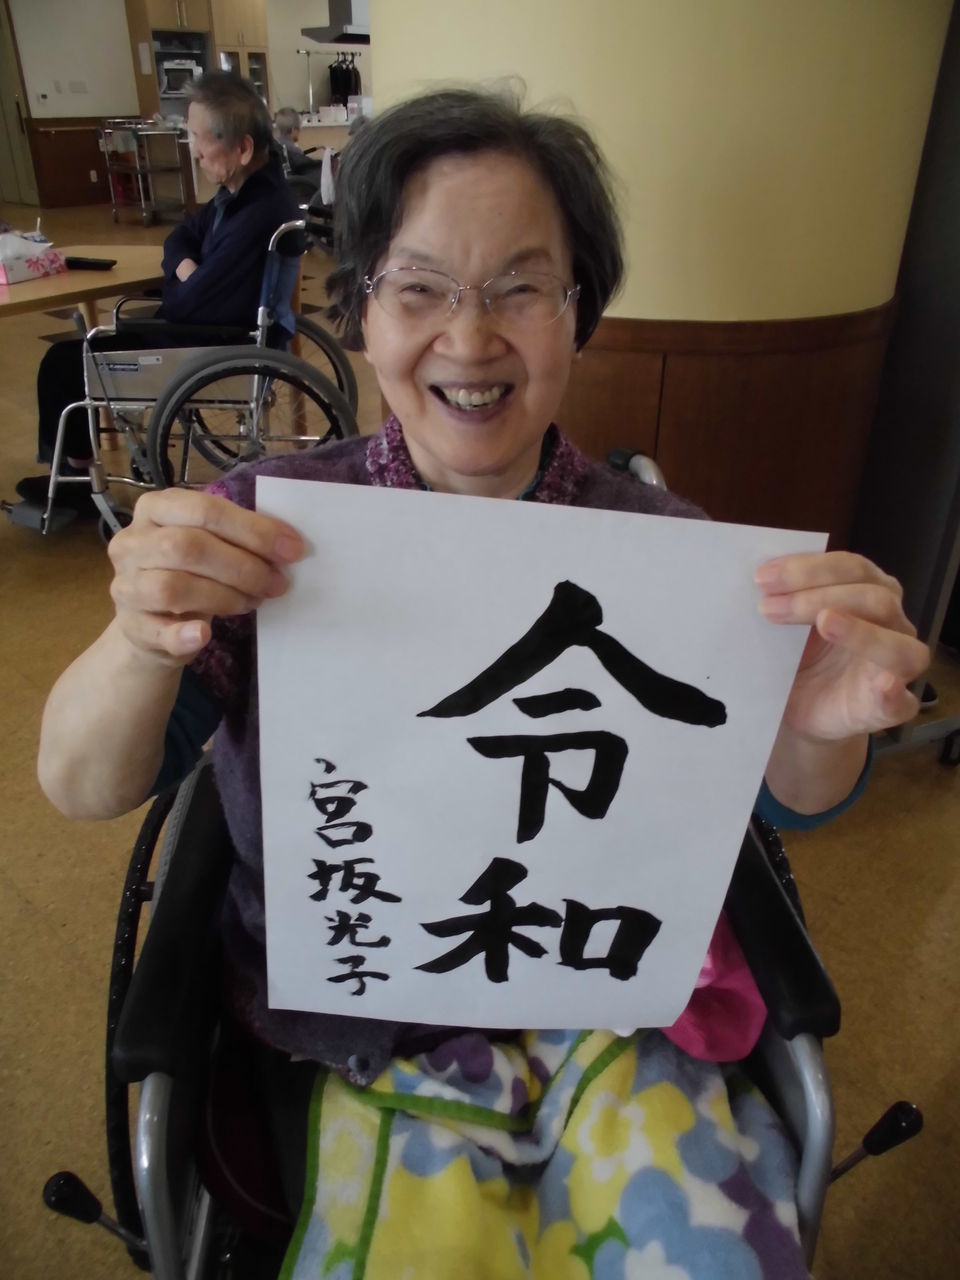 令和
宮坂光子